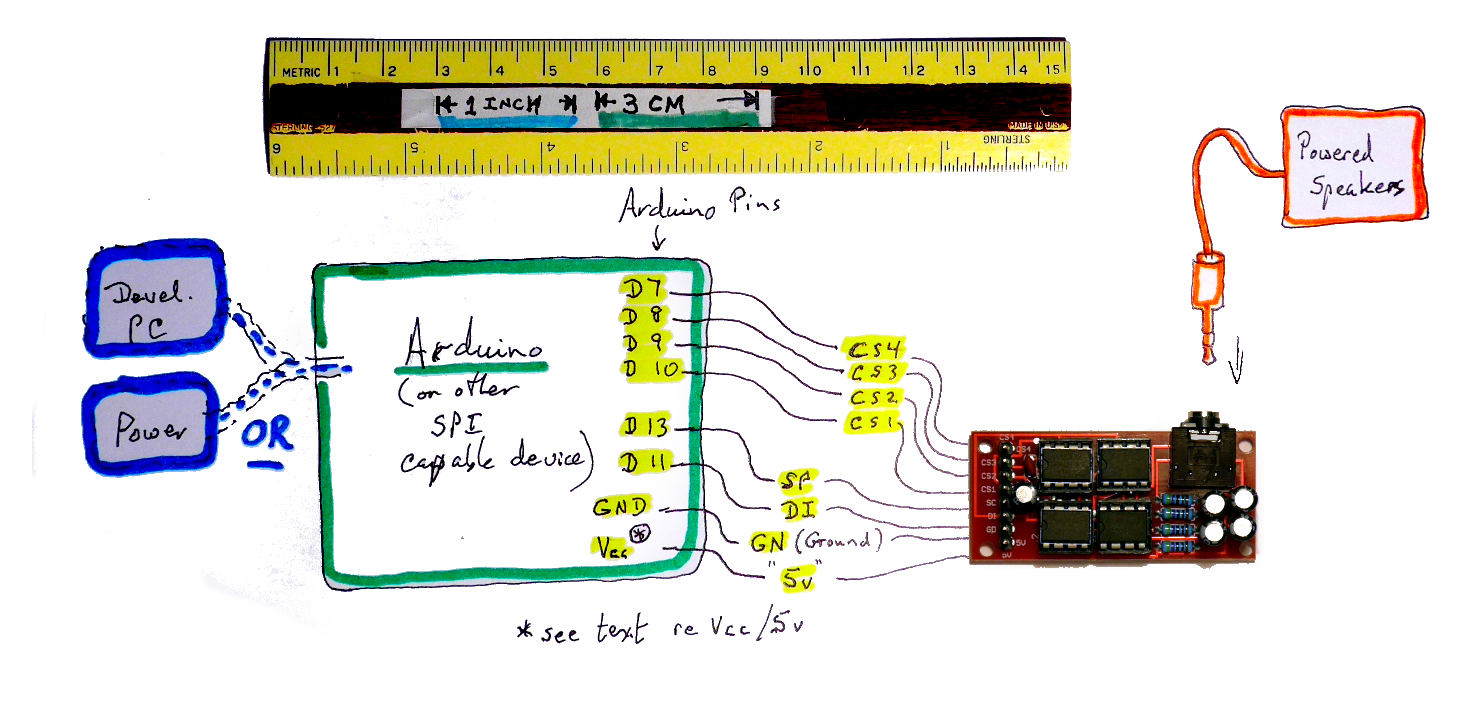 METRIC 1 2 3 4 5 6 7 8 9 10 11 12 13 14 15
1 INCH 3 CM
MADE IN USA
6 5 4 3 2 1
STERLING
Arduino Pins
Powered
Speakers
Devel.
PC
Power
OR
Arduino
(or other
SPI
capable device)
D7
D8
D9
D10
D13
D11
GND
Vcc*
CS4
CS3
CS2
CS1
DI
GN (Ground)
"5v"
CS4
CS3
CS2
CS1
SC
DI
GD
5V
5V
* see text re Vcc/5v